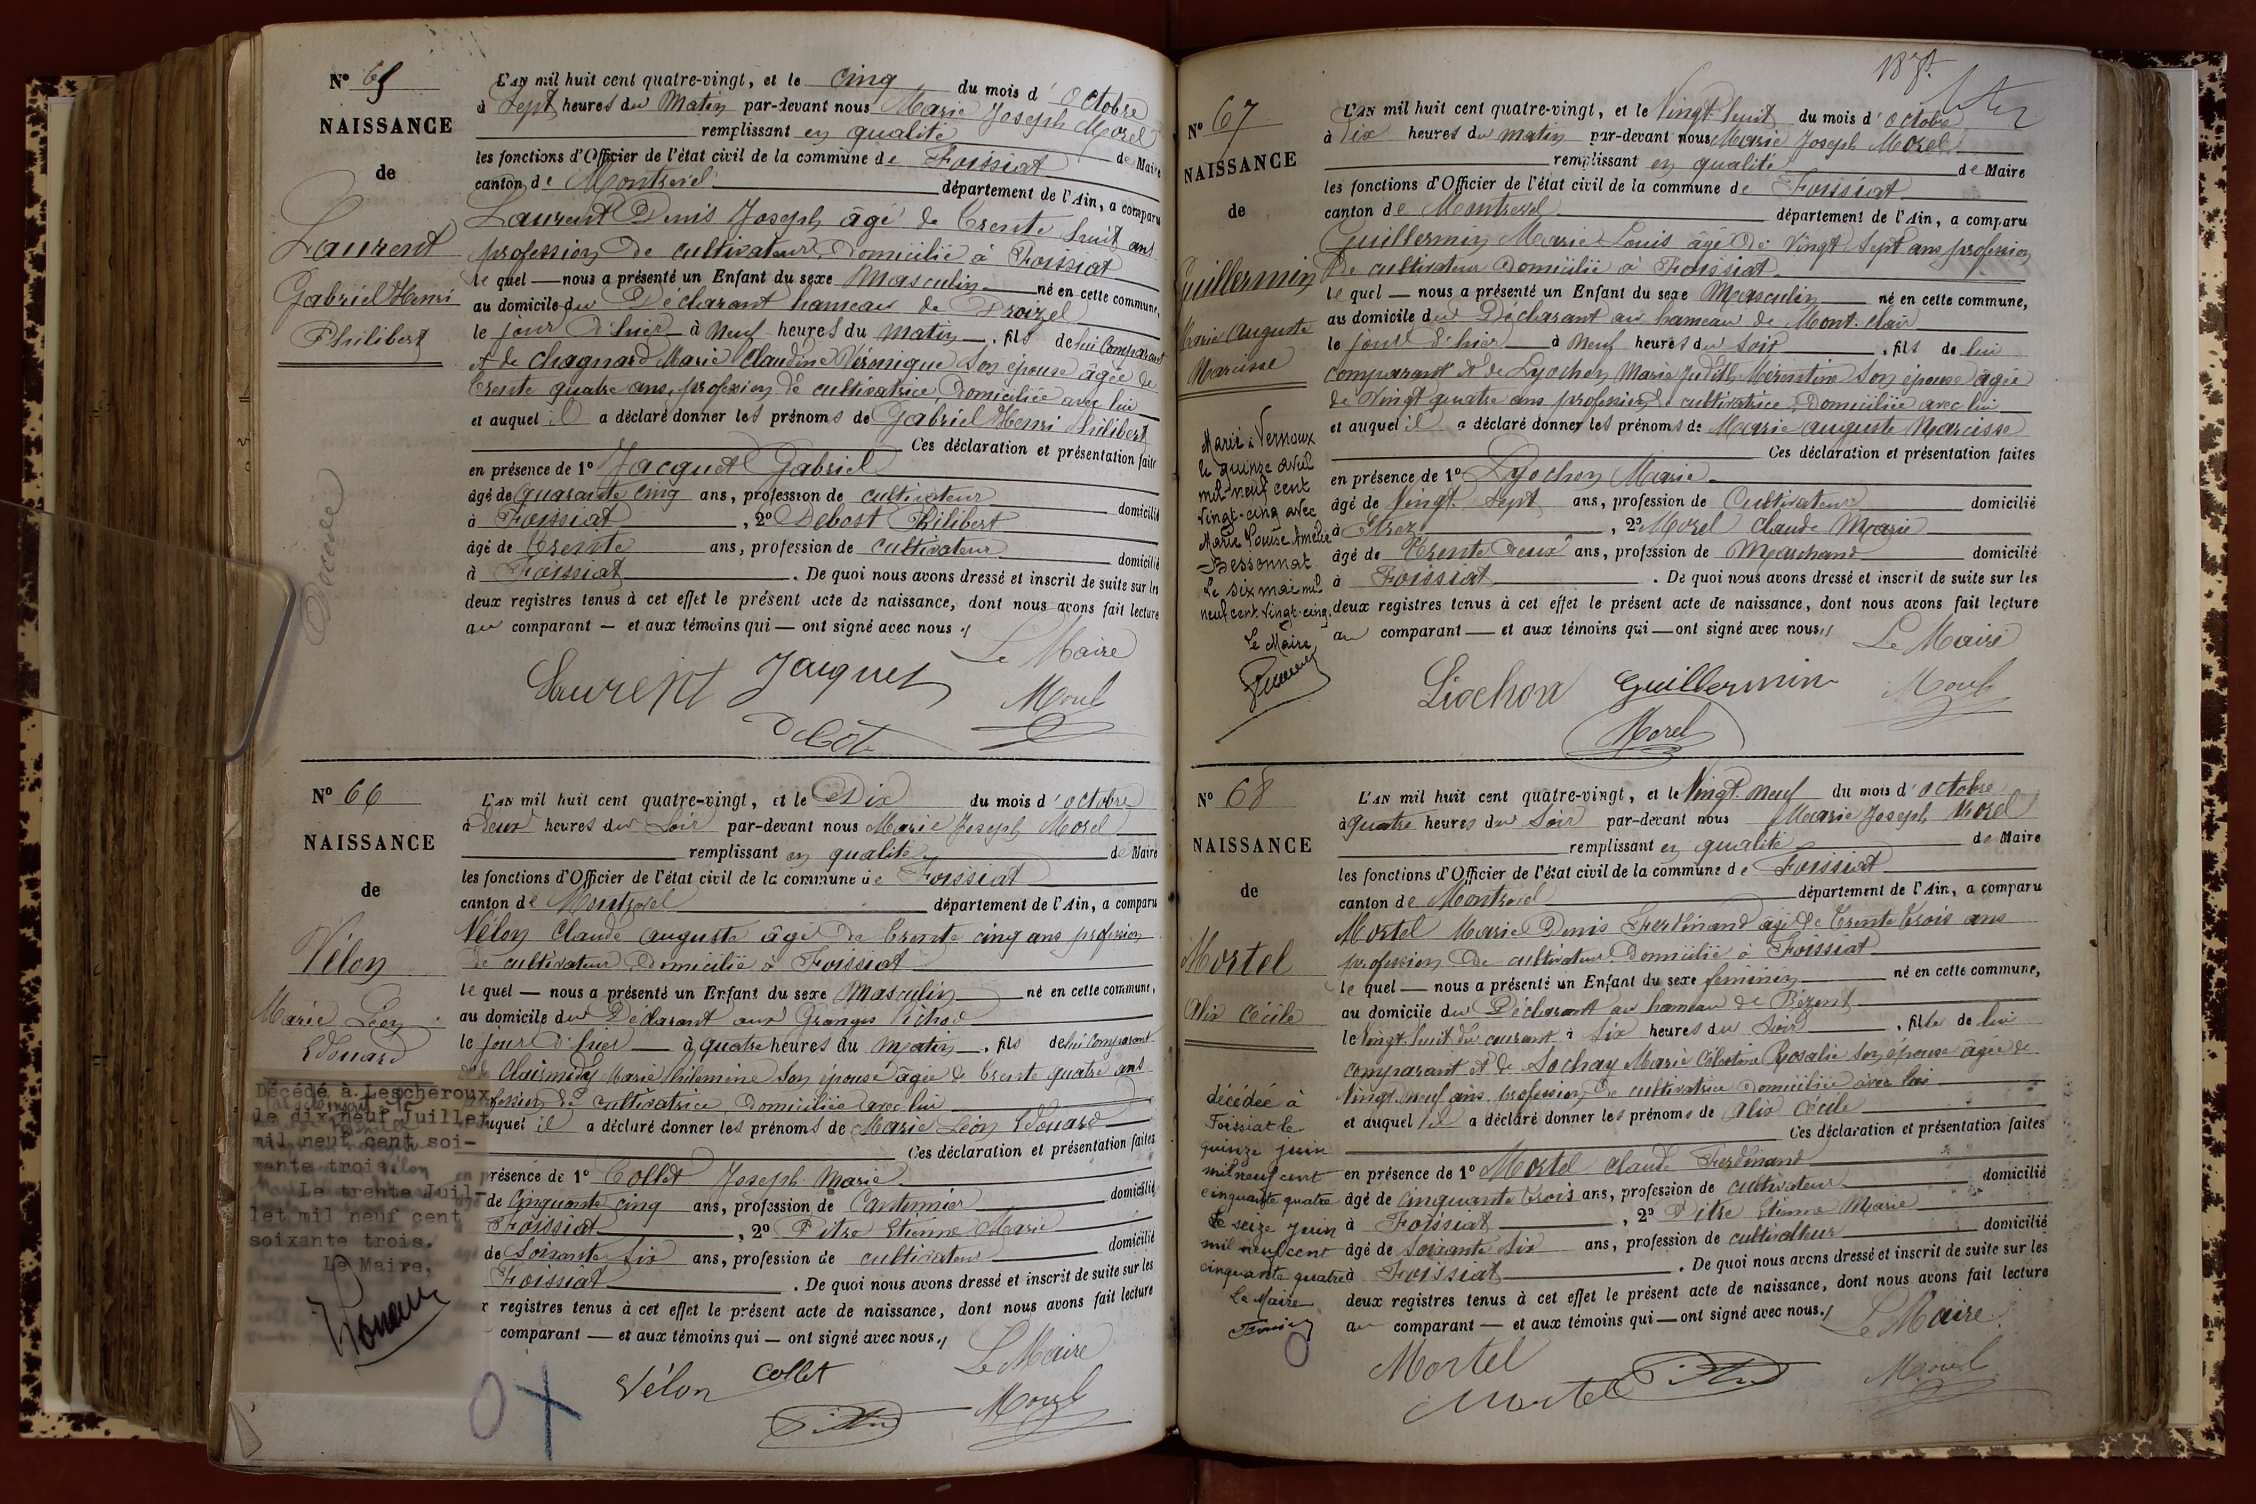 N° 65
NAISSANCE
de
Laurent
Gabriel Henri
Philibert
Décédé
L'AN mil huit cent quatre-vingt, et le cinq du mois d'octobre
à Sept heures du matin par-devant nous Marie Joseph Morel
remplissant en qualité de Maire
les fonctions d'Officier de l'état civil de la commune de Foissiat
canton de Montrevel département de l'Ain, a comparu
Laurent Denis Joseph âgé de trente huit ans
profession de cultivateur, domicilié à Foissiat
le quel — nous a présenté un Enfant du sexe masculin né en cette commune,
au domicile du Déclarant hameau de Droizel
le jour d'hier à neuf heures du matin, fils de lui Comparant
et de Chagnard Marie Claudine Véronique son épouse âgée de
trente quatre ans, profession de cultivatrice, domiciliée avec lui
et auquel il a déclaré donner les prénoms de Gabriel Henri Philibert
Ces déclaration et présentation faites
en présence de 1° Jacquet Gabriel
âgé de quarante cinq ans, profession de cultivateur domicilié
à Foissiat, 2° Debost Philibert
âgé de trente ans, profession de cultivateur domicilié
à Foissiat. De quoi nous avons dressé et inscrit de suite sur les
deux registres tenus à cet effet le présent acte de naissance, dont nous avons fait lecture
au comparant — et aux témoins qui — ont signé avec nous./
Le Maire
Laurent Jacquet Morel
N° 66
NAISSANCE
de
Vélon
Marie Léon
Edouard
Décédé à Lescheroux
le dix neuf Juillet
mil neuf cent soi-
xante trois.
Le trente Juil-
let mil neuf cent
soixante trois.
Le Maire,
L'AN mil huit cent quatre-vingt, et le Dix du mois d'octobre
à deux heures du soir par-devant nous Marie Joseph Morel
remplissant en qualité de Maire
les fonctions d'Officier de l'état civil de la commune de Foissiat
canton de Montrevel département de l'Ain, a comparu
Vélon Claude auguste âgé de trente cinq ans profession
de cultivateur, domicilié à Foissiat
le quel — nous a présenté un Enfant du sexe masculin né en cette commune,
au domicile du Déclarant aux Granges
le jour d'hier à quatre heures du matin, fils de lui Comparant
Marie Philomène son épouse âgée de trente quatre ans
de cultivatrice, domiciliée avec lui
auquel il a déclaré donner les prénoms de Marie Léon Edouard
Ces déclaration et présentation faites
en présence de 1° Collet Joseph Marie
de cinquante cinq ans, profession de Cantonnier domicilié
Foissiat, 2° Pitre Etienne Marie
de soixante six ans, profession de cultivateur domicilié
Foissiat. De quoi nous avons dressé et inscrit de suite sur les
registres tenus à cet effet le présent acte de naissance, dont nous avons fait lecture
comparant — et aux témoins qui — ont signé avec nous./
Le Maire
Vélon Collet Morel
N° 67
NAISSANCE
de
Guillermin
Marie Auguste
Narcisse
Marié à Vernoux
le quinze avril
mil-neuf cent
vingt-cinq avec
Marie Louise Amélie
Bessonnat
Le six mai mil
neuf cent vingt-cinq.
Le Maire
L'AN mil huit cent quatre-vingt, et le Vingt huit du mois d'octobre
à Dix heures du matin par-devant nous Marie Joseph Morel
remplissant en qualité de Maire
les fonctions d'Officier de l'état civil de la commune de Foissiat
canton de Montrevel département de l'Ain, a comparu
Guillermin Marie Louis âgé de Vingt sept ans profession
de cultivateur domicilié à Foissiat
le quel — nous a présenté un Enfant du sexe masculin né en cette commune,
au domicile du Déclarant au hameau de Mont-clair
le jour d'hier à neuf heures du soir, fils de lui
comparant et de Lyochon Marie Judith son épouse âgée
de Vingt quatre ans profession de cultivatrice, domiciliée avec lui
et auquel il a déclaré donner les prénoms de Marie auguste Narcisse
Ces déclaration et présentation faites
en présence de 1° Lyochon Marie
âgé de Vingt sept ans, profession de Cultivateur domicilié
à Etrez, 2° Morel Claude Marie
âgé de Trente deux ans, profession de Marchand domicilié
à Foissiat. De quoi nous avons dressé et inscrit de suite sur les
deux registres tenus à cet effet le présent acte de naissance, dont nous avons fait lecture
au comparant — et aux témoins qui — ont signé avec nous./
Le Maire
Liochon Guillermin Morel
Morel
N° 68
NAISSANCE
de
Mortel
Alix Cécile
décédée à
Foissiat le
quinze juin
mil neuf cent
cinquante quatre
Le seize Juin
mil neuf cent
cinquante quatre
Le Maire
L'AN mil huit cent quatre-vingt, et le Vingt-neuf du mois d'octobre
à quatre heures du soir par-devant nous Marie Joseph Morel
remplissant en qualité de Maire
les fonctions d'Officier de l'état civil de la commune de Foissiat
canton de Montrevel département de l'Ain, a comparu
Mortel Marie Denis Ferdinand âgé de trente trois ans
profession de cultivateur domicilié à Foissiat
le quel — nous a présenté un Enfant du sexe féminin né en cette commune,
au domicile du Déclarant au hameau de Bézent
le vingt huit du courant à six heures du soir, fille de lui
comparant et de Sochay Marie Célestine Rosalie son épouse âgée de
Vingt neuf ans profession de cultivatrice domiciliée avec lui
et auquel il a déclaré donner les prénoms de Alix Cécile
Ces déclaration et présentation faites
en présence de 1° Mortel Claude Ferdinand
âgé de cinquante trois ans, profession de cultivateur domicilié
à Foissiat, 2° Pitre Etienne Marie
âgé de soixante six ans, profession de cultivateur domicilié
à Foissiat. De quoi nous avons dressé et inscrit de suite sur les
deux registres tenus à cet effet le présent acte de naissance, dont nous avons fait lecture
au comparant — et aux témoins qui — ont signé avec nous./
Le Maire
Mortel
Mortel Morel